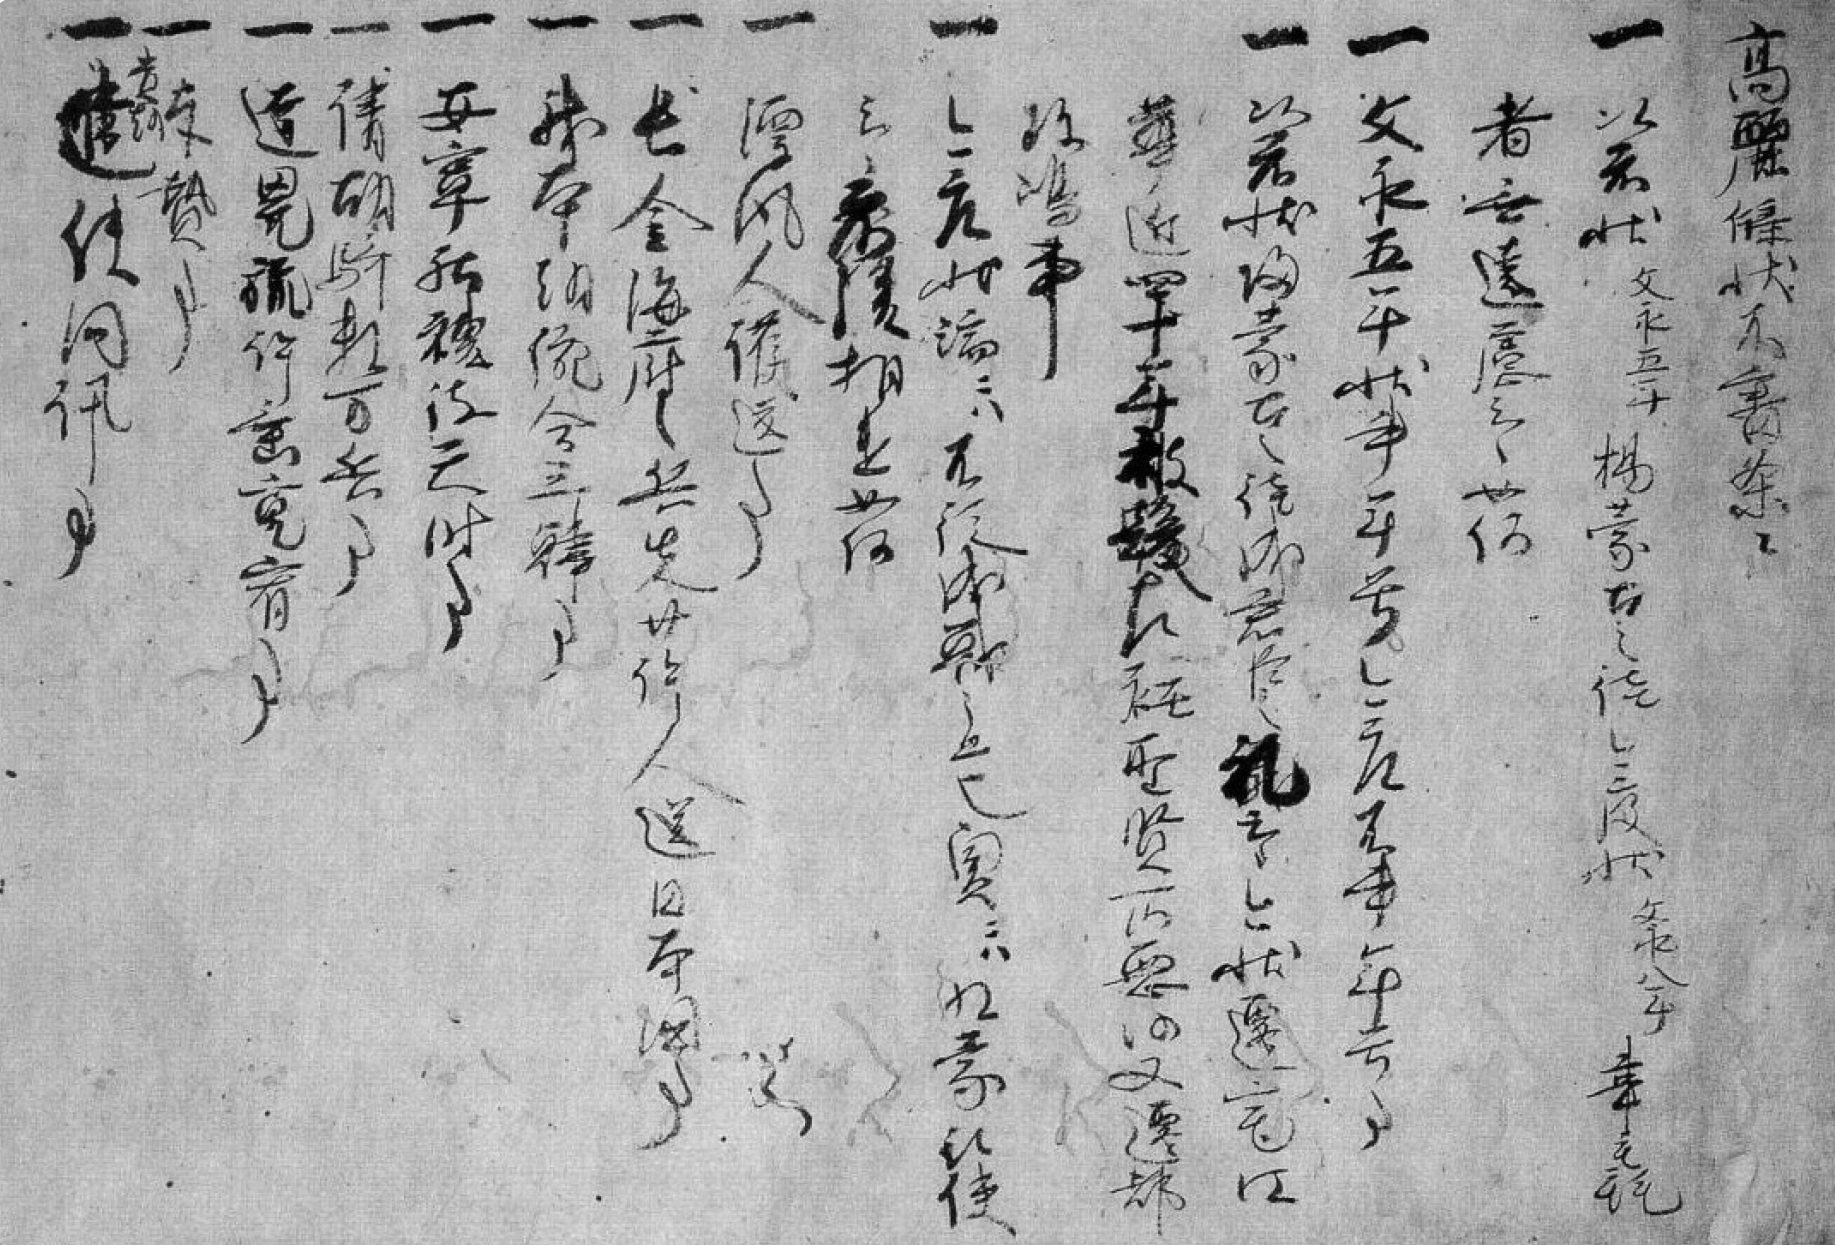 高麗牒状不審条々
一 以前状文永五年揚蒙古之徳今度状文永八年韋毳
者無遠慮云々如何
一 文永五年状書年号今度不書年号事
一 以前状帰蒙古之徳成君臣之礼云々今状遷宅江
華近四十年被髪左衽聖賢所悪仍又遷都
珍島事
一 今度状端ニハ不従成戦之思也奥ニハ為蒙被使
云々前後相違如何
一 漂風人護送事
一 屯金海府之兵先廿許人送日本国事
一 我本朝統合三韓事
一 安寧社稷待天時事
一 請胡騎数万兵事
一 達兇旒許垂寛宥事
一 奉贄事
一 遣使問訊事